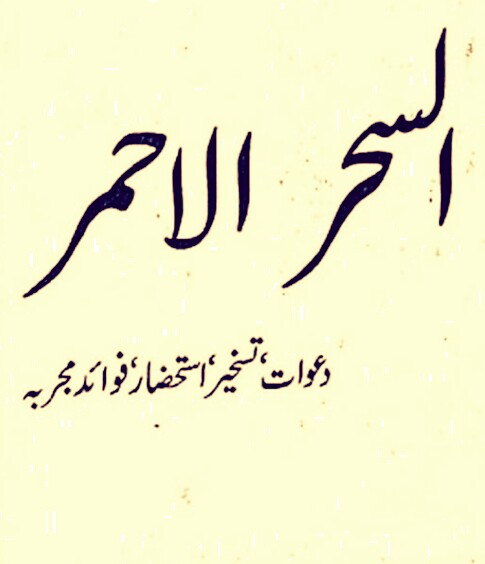 السحر الاحمر
دعوات، تسخیر، استحضار، فوائد مجربہ